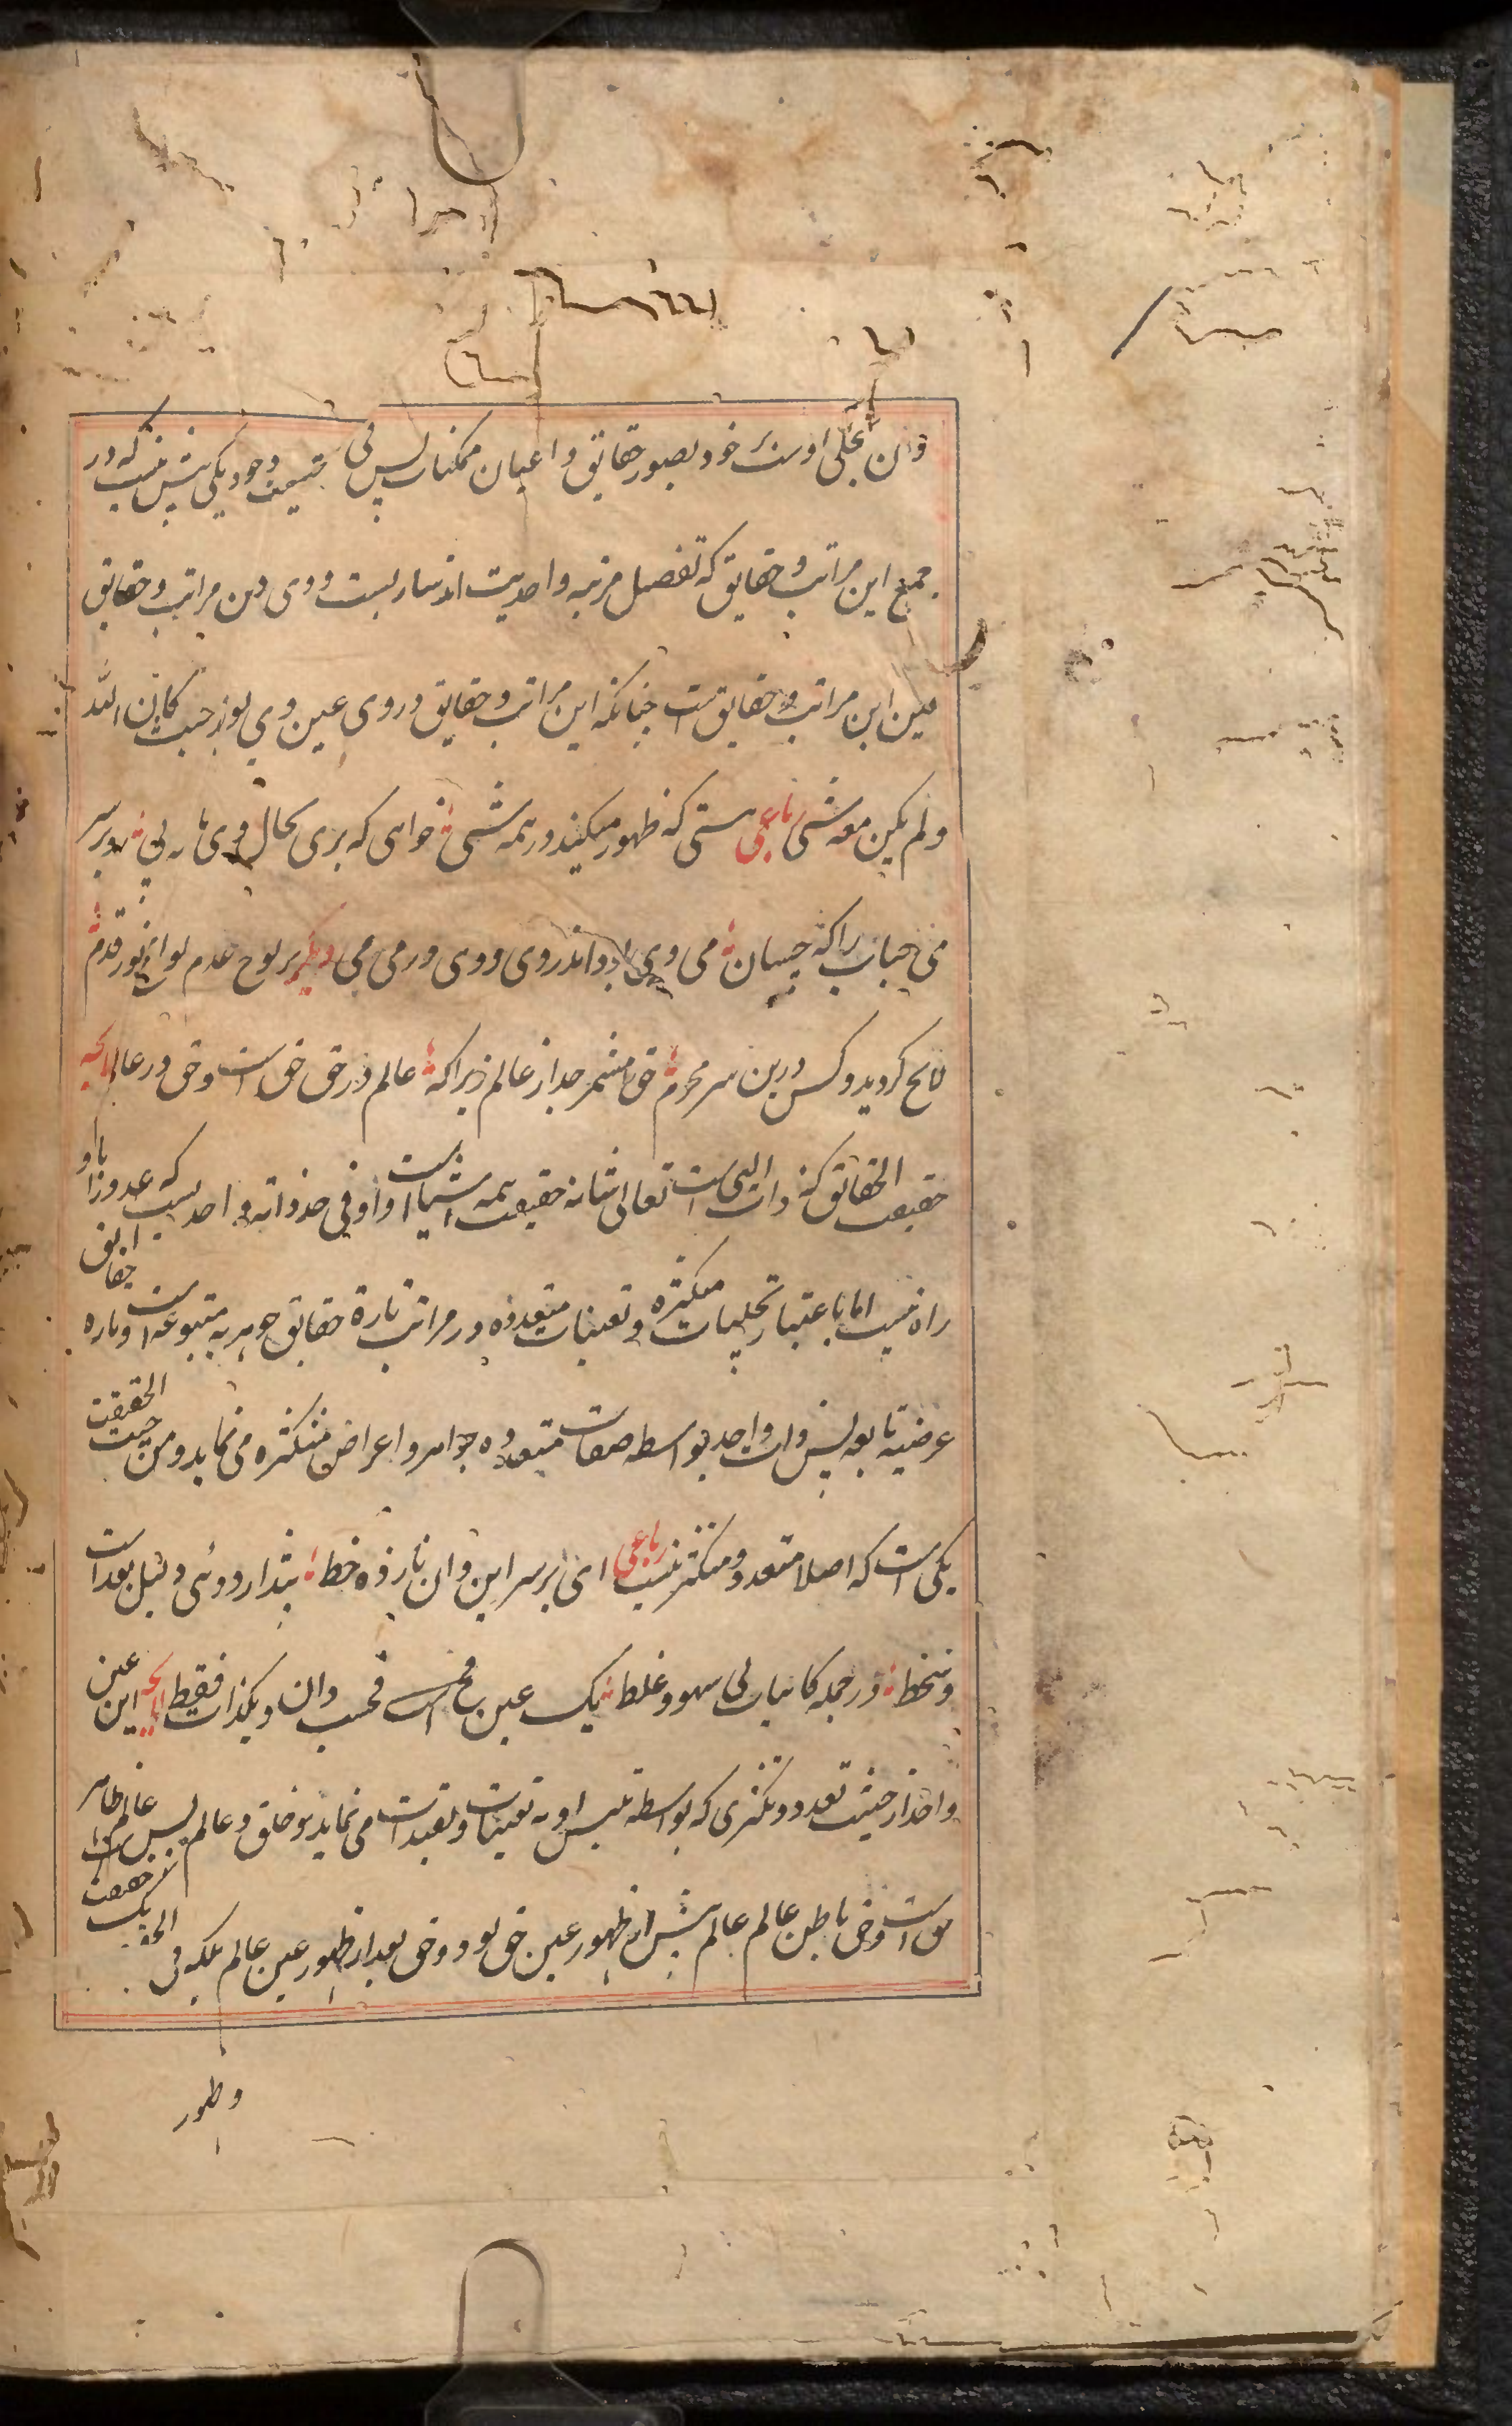 وان تجلی اوست بر خود بصور حقایق و اعیان ممکنات پس فی الحقیقت وجود یکی بیش نیست که در
جمیع این مراتب و حقایق که تفصیل مرتبه واحدیت اند ساریست و وی درین مراتب و حقایق
عین این مراتب و حقایقست چنانکه این مراتب و حقایق در وی عین وی بود حیث کان الله
ولم یکن معه شی رباعی هستی که ظهور میکند در همه شی خواهی که بری بحال وی باهمه پی رو بر سر
می حباب را که چسان می وی بود اندر وی و وی در می می دیگر بر لوح عدم لوایح نور قدم
لایح گردید و کس درین سر محرم حق را مشمر جدا ز عالم زیراکه عالم در حق حق است و حق در عالم لایحه
حقیقت الحقائق که ذات الهی است تعالی شانه حقیقت همه اشیاست و او فی حد ذاته واحدیست که عدد را باو
راه نیست اما باعتبار تجلیات متکثره و تعینات متعدده در مراتب تارة حقایق جوهریه متبوعه است و تاره حقایق
عرضیه تابعه پس ذات واحد بواسطه صفات متعدده جواهر و اعراض متکثره می نماید و من حیث الحقیقت
یکی است که اصلا متعدد و متکثر نیست رباعی ای بر سر این وان نازده خط پندار دوئی دلیل بعد است
و سخط در جمله کاینات بی سهو و غلط یک عین فحسب دان و یکذات فقط لایحه این عین
واحد از حیثیت تعدد و تکثری که بواسطه تلبس او به تعینات و تقیدات می نماید خلق و عالم پس عالم ظاهر
حق است و حق باطن عالم عالم پیش از ظهور عین حق بود و حق بعد از ظهور عین عالم بلکه فی الحقیقت یک
وظهور